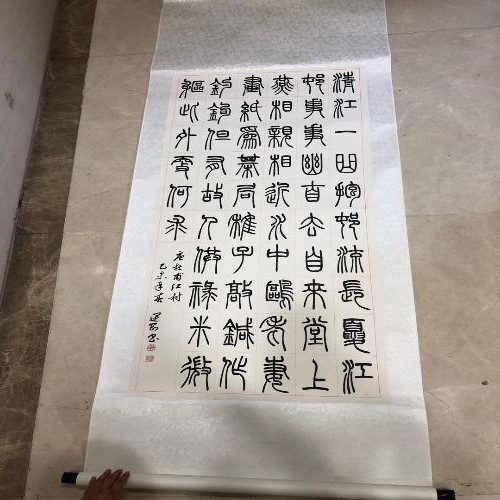 清江一曲抱村流長夏江
村事事幽自去自來堂上
燕相親相近水中鷗老妻
畫紙爲棊局稚子敲鍼作
釣鉤但有故人供祿米微
軀此外更何求
唐杜甫江村
乙未年春
書